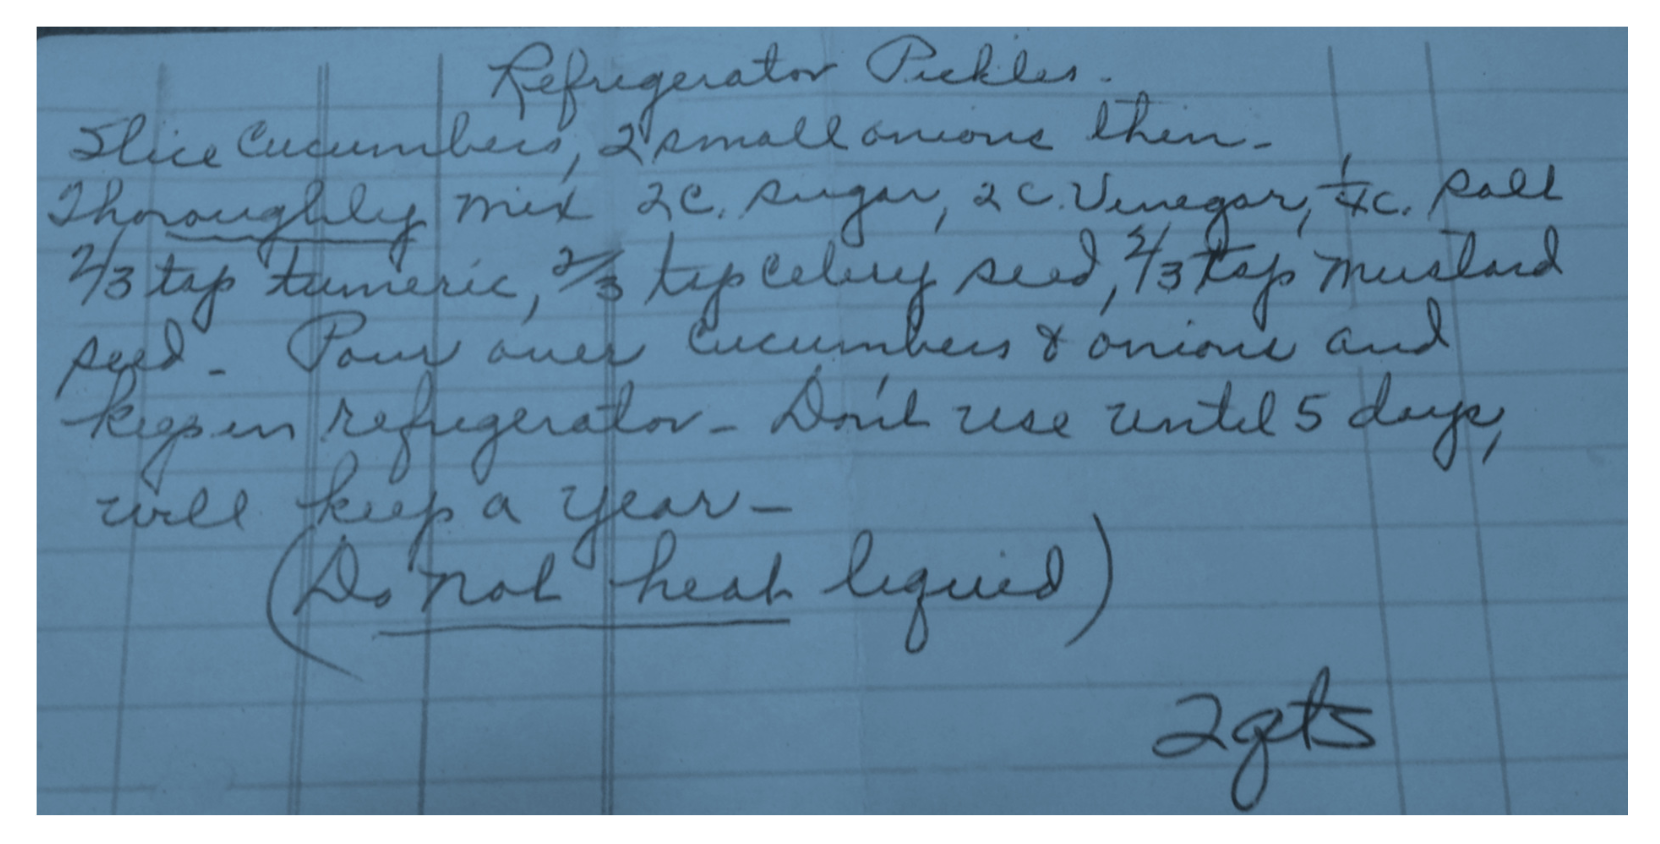 Refrigerator Pickles.
Slice Cucumbers, 2 small onions thin -
Thoroughly mix 2C. sugar, 2 C. Vinegar, 1/4 c. salt
2/3 tsp tumeric, 2/3 tsp Celery seed, 2/3 tsp mustard
seed - Pour over cucumbers & onions and
keep in refrigerator - Don't use until 5 days,
will keep a year -
(Do not heat liquid)
2qts